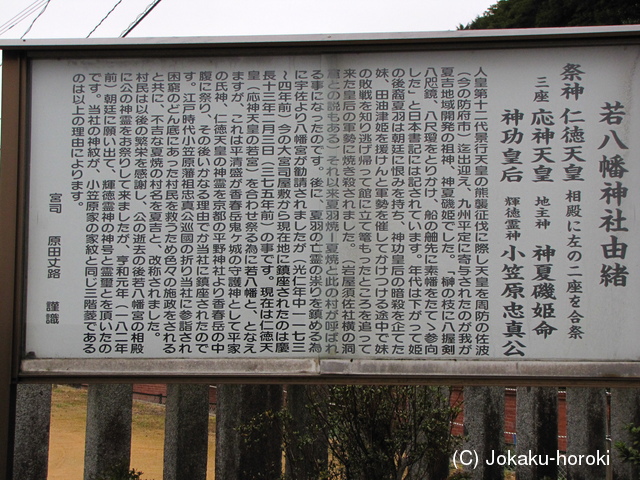 若八幡神社由緒
祭神 仁徳天皇 相殿に左の二座を合祭
三座 応神天皇 地主神 神夏磯姫命
神功皇后 輝徳霊神 小笠原忠真公
人皇第十二代景行天皇の熊襲征伐に際し天皇を周防の佐波
(今の防府市)迄出迎え、九州平定に寄与されたのが我が
夏吉地域開発の祖神、神夏磯姫でした。「榊の枝に八握剣
八咫鏡、八尺瓊をとりかけ、船の舳先に素幡をたてゝ参向
した」と日本書記には記されています。年代は下がって姫
の後裔夏羽は朝廷に恨みを持ち、神功皇后の暗殺を企てた
妹、田油津姫を援けんと軍勢を催してかけつける途中で妹
の敗戦を知り逃げ帰って館に立て篭もったところを追って
来た皇后の軍勢に焼き殺されました。(岩屋須佐社横の洞
窟との説もある)それ以来夏羽焼ー夏焼と此の村が呼ばれ
る事になったのです。後に、夏羽の亡霊の祟りを鎮める為
に宇佐より八幡宮が勧請されましたが(光仁年中一一七三
〜四年前)今の大宮司屋敷から現在地に鎮座されたのは慶
長十三年二月三日(三七五年前)の事です。現在は仁徳天
皇(応神天皇の若宮)を合わせ祭る為に若八幡と、となえ
ますが、これは平清盛が香春岳鬼ケ城の守護神として平家
の氏神、仁徳天皇の神霊を京都の平野神社より香春岳の中
腹に祭り、その後いかなる理由でか当社に鎮座されたので
す。江戸時代小笠原藩祖忠真公巡國の折り当社に参詣され
困窮のどん底にあった村民を救うため色々の施政をされる
と共に、不吉な夏焼の村名を夏吉と、改称されました。
村民は以後の繁栄を感謝し、公の逝去の後若八幡宮の相殿
に公の神霊をお祭りして来ましたが、享和元年(一八二年
前)朝廷に願い出て、輝徳霊神の神号と霊璽とを頂いたの
です。当社の神紋が、小笠原家の家紋と同じ三階菱である
のは以上の理由によります。
宮司 原田丈路 謹識
(C) Jokaku-horoki